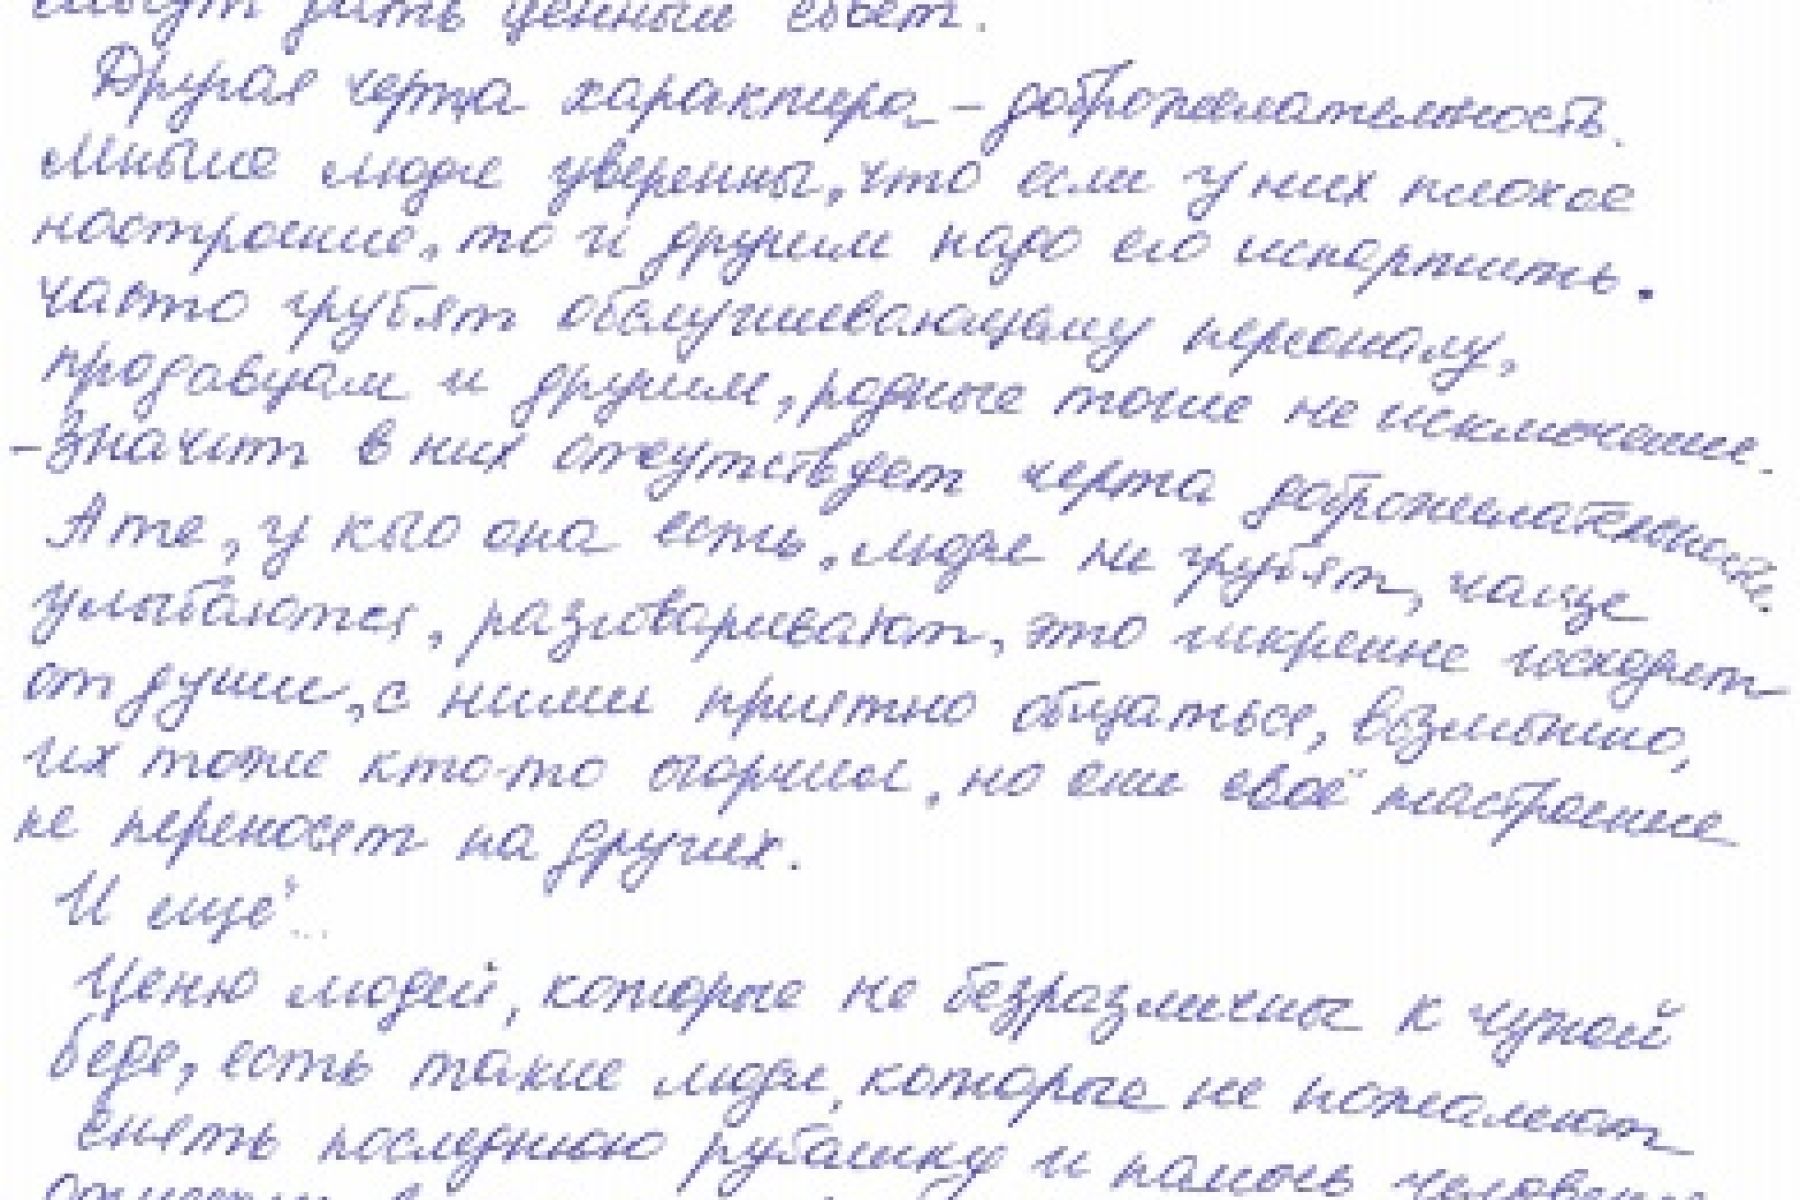 смогут дать ценный совет.
Другая черта характера – доброжелательность.
Многие люди уверенны, что если у них плохое
настроение, то и другим надо его испортить.
Часто грубят обслуживающему персоналу,
продавцам и другим, родные тоже не исключение.
– значит в них отсутствует черта доброжелательность.
А те, у кого она есть, люди не грубят, чаще
улыбаются, разговаривают, это искренне исходит
от души, с ними приятно общаться, возможно,
их тоже кто-то огорчил, но они своё настроение
не переносят на других.
И ещё...
Ценю людей, которые не безразличны к чужой
беде, есть такие люди, которые не пожалеют
снять последнюю рубашку и помочь человеку